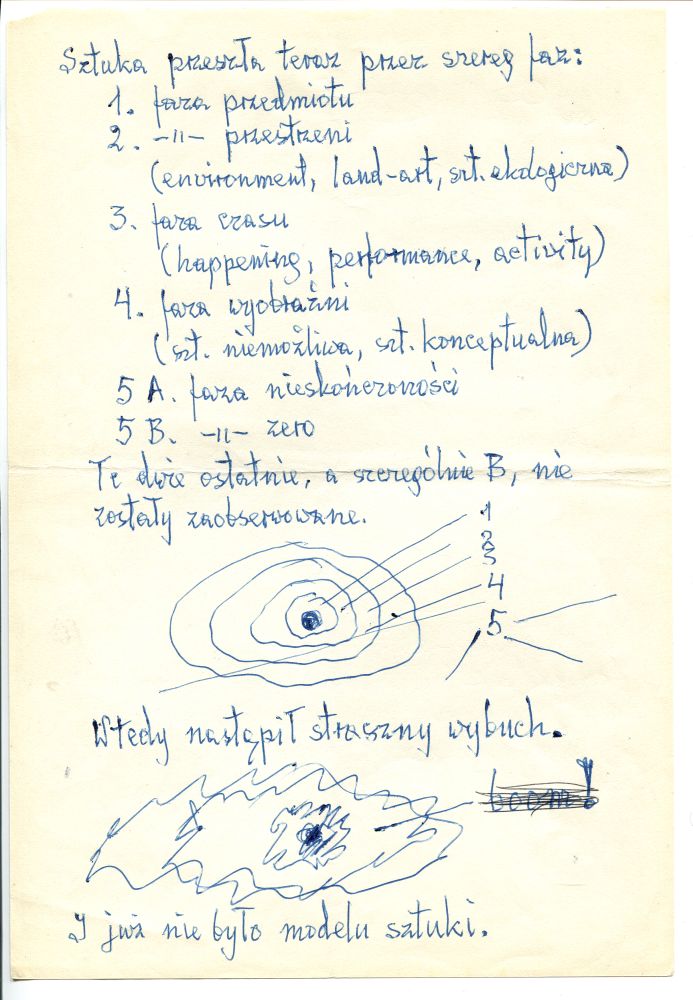 Sztuka przeszła teraz przez szereg faz:
1. faza przedmiotu
2. -"- przestrzeni
(environment, land-art, szt. ekologiczna)
3. faza czasu
(happening, performance, activity)
4. faza wyobraźni
(szt. niemożliwa, szt. konceptualna)
5 A. faza nieskończoności
5 B. -"- zero
Te dwie ostatnie, a szczególnie B, nie
zostały zaobserwowane.
1
2
3
4
5.
Wtedy nastąpił straszny wybuch.
boom!
I już nie było modelu sztuki.